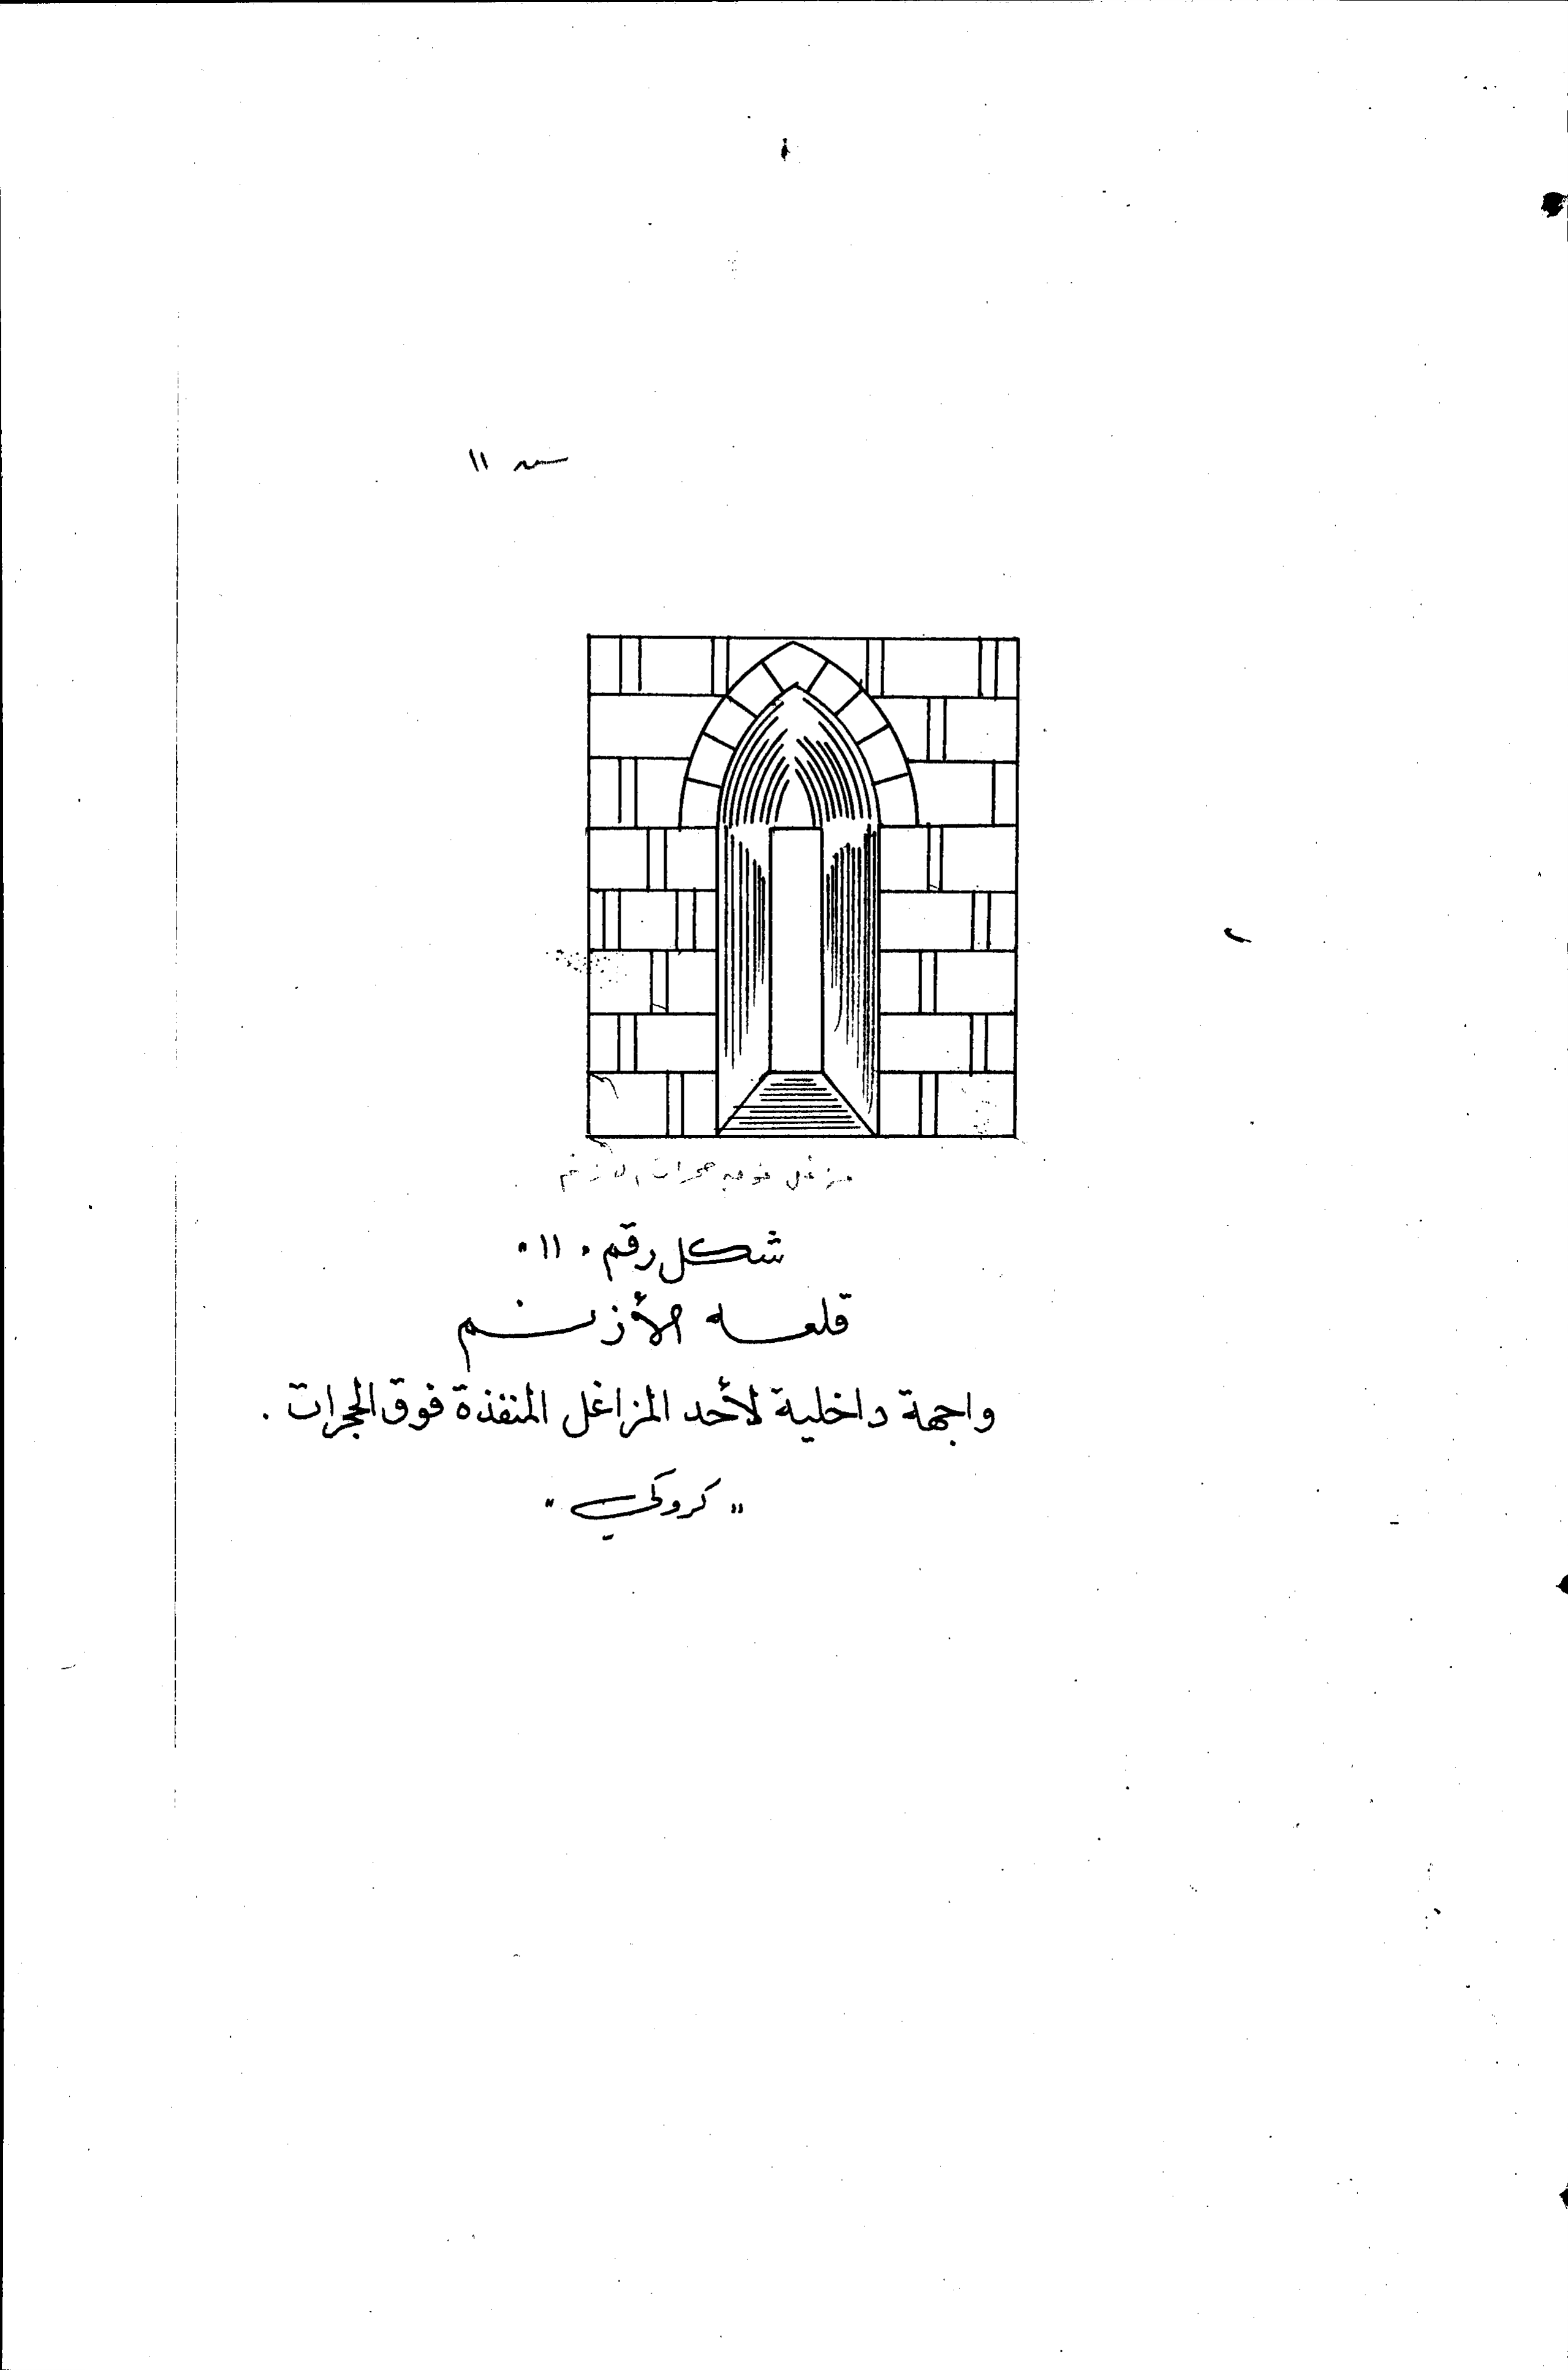 ١١
مزاغل فوق حجرات الازنم
شكل رقم "١١"
قلعه الأزنم
واجهة داخلية لأحد المزاغل المنفذة فوق الحجرات .
"كروكي"